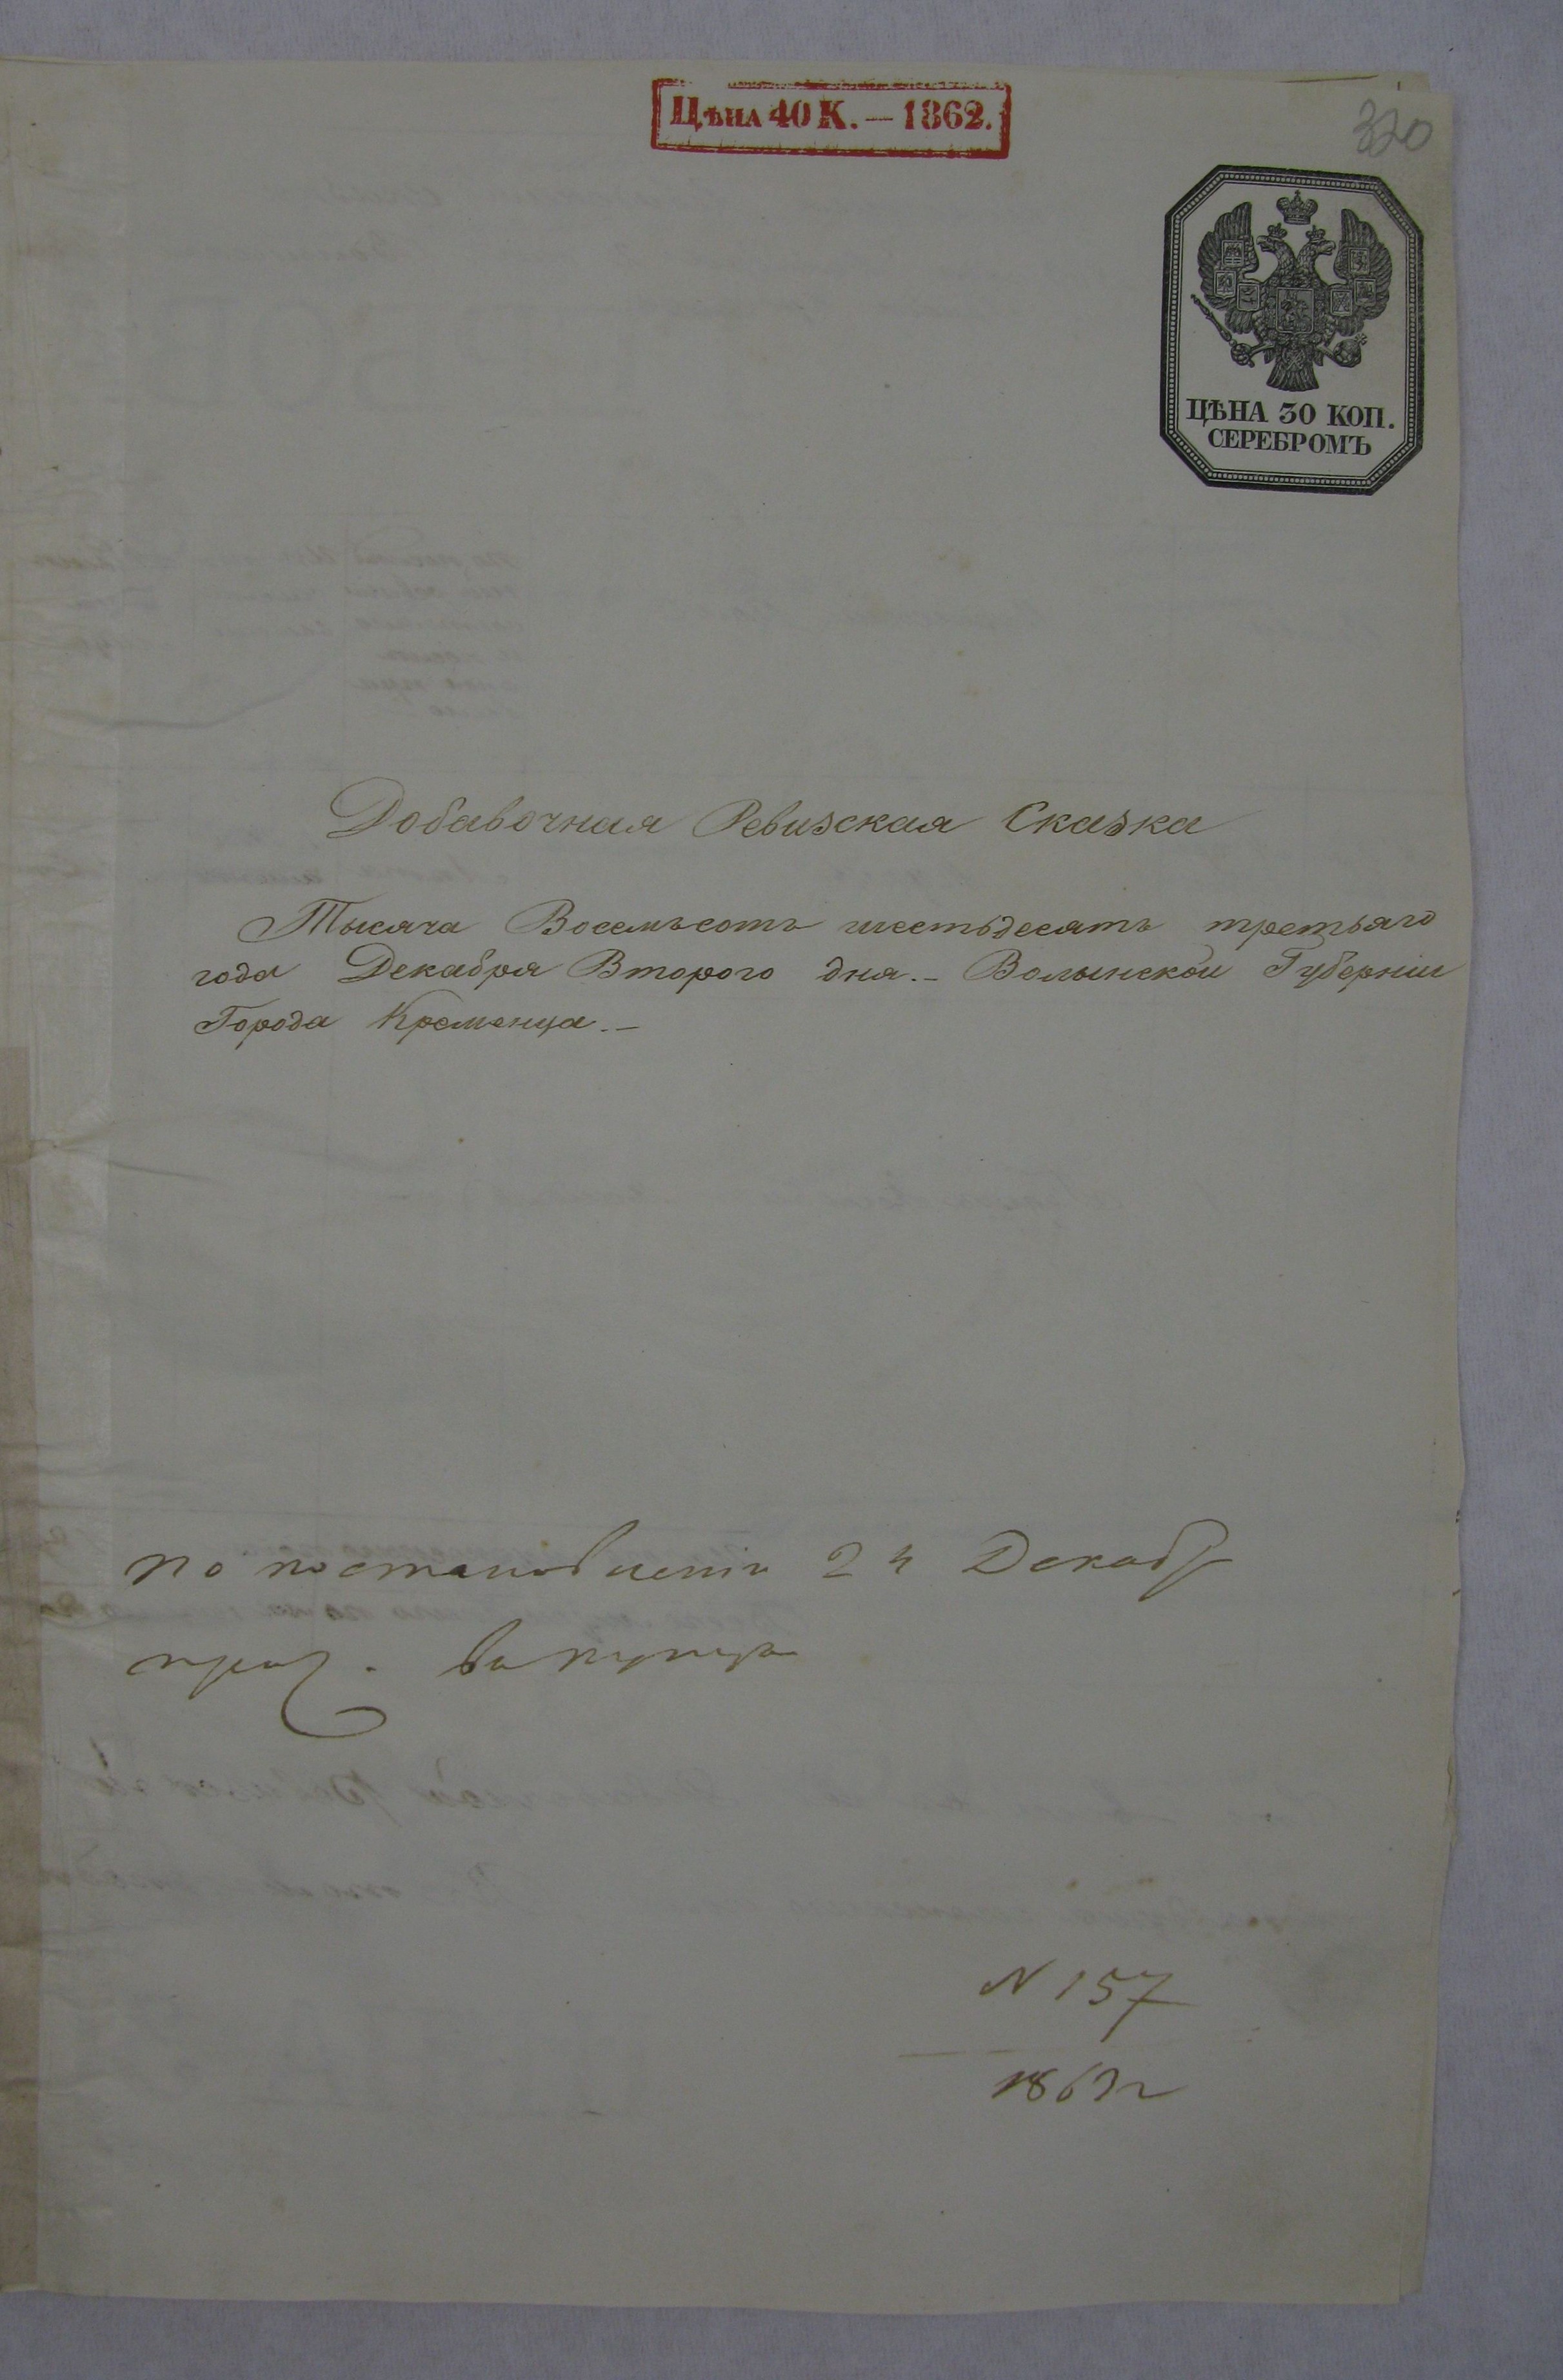 Цѣна 40 К. — 1862.
320
ЦѢНА 30 КОП.
СЕРЕБРОМЪ
Добавочная Ревизская Сказка
Тысяча Восемьсотъ шестьдесятъ третьяго
года Декабря Второго дня. – Волынской Губерніи
Города Кременца. –
по постановленію 24 Декабр
N 157
1863 г